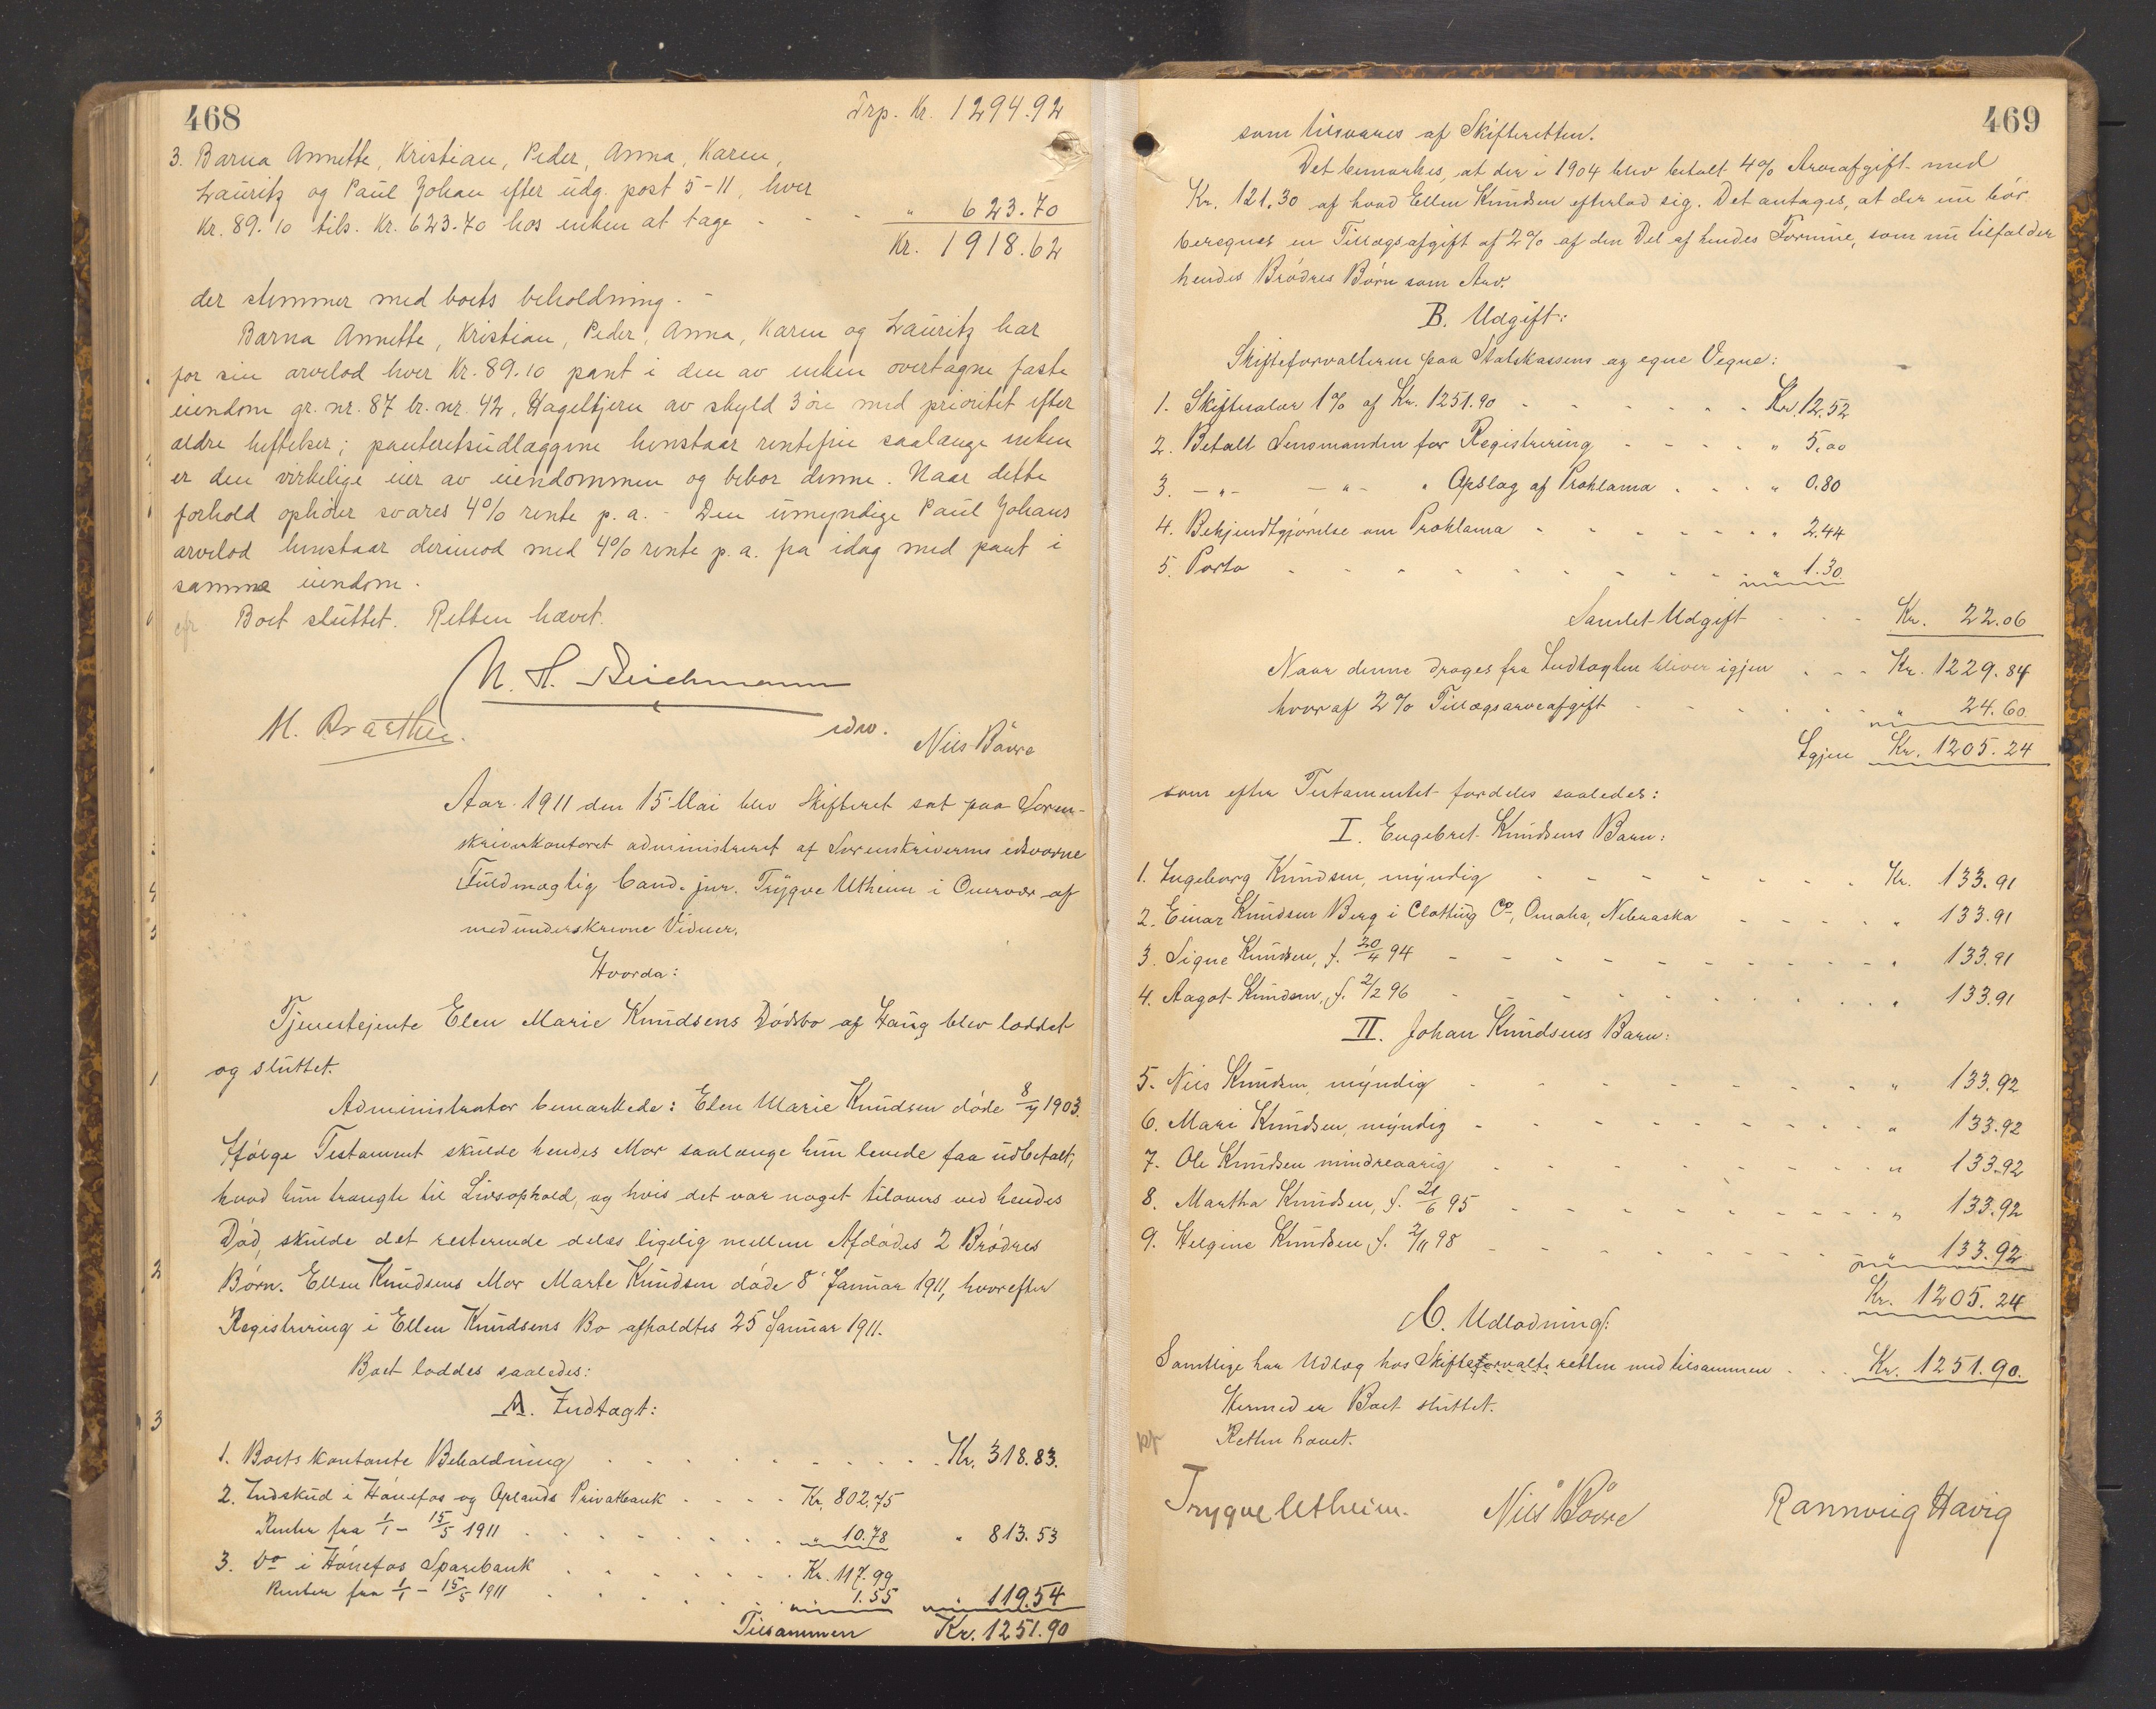 468
Trp. Kr. 1294.92
3. Barna Annette, Kristian, Peder, Anna, Karen,
Lauritz og Paul Johan efter udg. post 5-11, hver
Kr. 89.10 tils. Kr. 623.70 hos enken at tage - - - " 623.70
Kr. 1918.62
der stemmer med boets beholdning. -
Barna Annette, Kristian, Peder, Anna, Karen og Lauritz har
for sin arvelod hver Kr. 89.10 pant i den av enken overtagne faste
eiendom gr. nr. 87 br. nr. 42, Hagelbjern av skyld 3 øre med prioritet efter
ældre heftelser; panteretsudlæggene henstaar rentefrie saalænge enken
er den virkelige eier av eiendommen og bebor denne. Naar dette
forhold ophører svares 4% rente p. a. - Den umyndige Paul Johans
arvelod henstaar derimod med 4% rente p. a. fra idag med pant i
samme eiendom.
Boet sluttet. Retten hævet.
N. H. Reichmann
M. Braathen. edsv. Nils Båvre
Aar 1911 den 15' Mai blev Skifteret sat paa Soren-
skriverkontoret administreret af Sorenskriverens edsvorne
Fuldmægtig Cand. jur. Trygve Utheim i Overvær af
medunderskrevne Vidner.
Hvorda:
Tjenestejente Elen Marie Knudsens Dødsbo af Haug blev loddet
og sluttet.
Administrator bemærkede: Elen Marie Knudsen døde 8/4 1903.
Ifølge Testament skulde hendes Mor saalænge hun levede faa udbetalt,
hvad hun trængte til Livsophold, og hvis det var noget tilovers ved hendes
Død, skulde det resterende deles ligelig mellem Afdødes 2 Brødres
Børn. Ellen Knudsens Mor Marte Knudsen døde 8' Januar 1911, hvorefter
Registrering i Ellen Knudsens Bo afholdtes 25 Januar 1911.
Boet loddes saaledes:
A. Indtægt:
1. Boets kontante Beholdning . . . . Kr. 318.83.
2. Indskud i Hønefos og Oplands Privatbank . . . . Kr. 802.75
Renter fra 1/1 - 15/5 1911 . . . . " 10.78 " 813.53
3. Do i Hønefos Sparebank . . . . Kr. 117.99
Renter fra 1/1 - 15/5 1911 . . . . 1.55 119.54
Tilsammen Kr. 1251.90
469
som tilsvares af Skifteretten.
Det bemærkes, at der i 1904 blev betalt 4% Arveafgift med
Kr. 121.30 af hvad Ellen Knudsen efterlod sig. Det antages, at der nu bør
beregnes en Tillægsafgift af 2% af den Del af hendes Formue, som nu tilfalder
hendes Brødres Børn som Arv.
B. Udgift:
Skifteforvalteren paa Statskassens og egne Vegne:
1. Skiftesalær 1% af Kr. 1251.90 - - - - Kr. 12.52
2. Betalt Lensmanden for Registrering - - - - " 5.00
3. - " - - " - " Opslag af Proklama . . . " 0.80
4. Bekjendtgjørelse om Proklama - - - - " 2.44
5. Porto - - - - " 1.30
Samlet Udgift - - - Kr. 22.06
Naar denne drages fra Indtægten bliver igjen . - - Kr. 1229.84
hvoraf 2% Tillægsarveafgift - - - - " 24.60
Igjen Kr. 1205.24
som efter Testamentet fordeles saaledes:
I. Engebret Knudsens Barn:
1. Ingeborg Knudsen, myndig - - - - Kr. 133.91
2. Einar Knudsen Berg i Clotting Co, Omaha, Nebraska - - - - " 133.91
3. Signe Knudsen, f. 20/4 94 - - - - " 133.91
4. Aagot Knudsen, f. 2/2 96 - - - - " 133.91
II. Johan Knudsens Barn:
5. Nils Knudsen, myndig - - - - " 133.92
6. Mari Knudsen, myndig - - - - " 133.92
7. Ole Knudsen mindreaarig - - - - " 133.92
8. Martha Knudsen, f. 21/6 95 - - - - " 133.92
9. Helgine Knudsen f. 2/11 98 - - - - " 133.92
Kr. 1205.24
C. Udlodning:
Samtlige har Udlæg hos Skifteforvalte retten med tilsammen . . . Kr. 1251.90.
Hermed er Boet sluttet.
Retten hævet.
Trygve Utheim. Nils Båvre Rannveig Havig